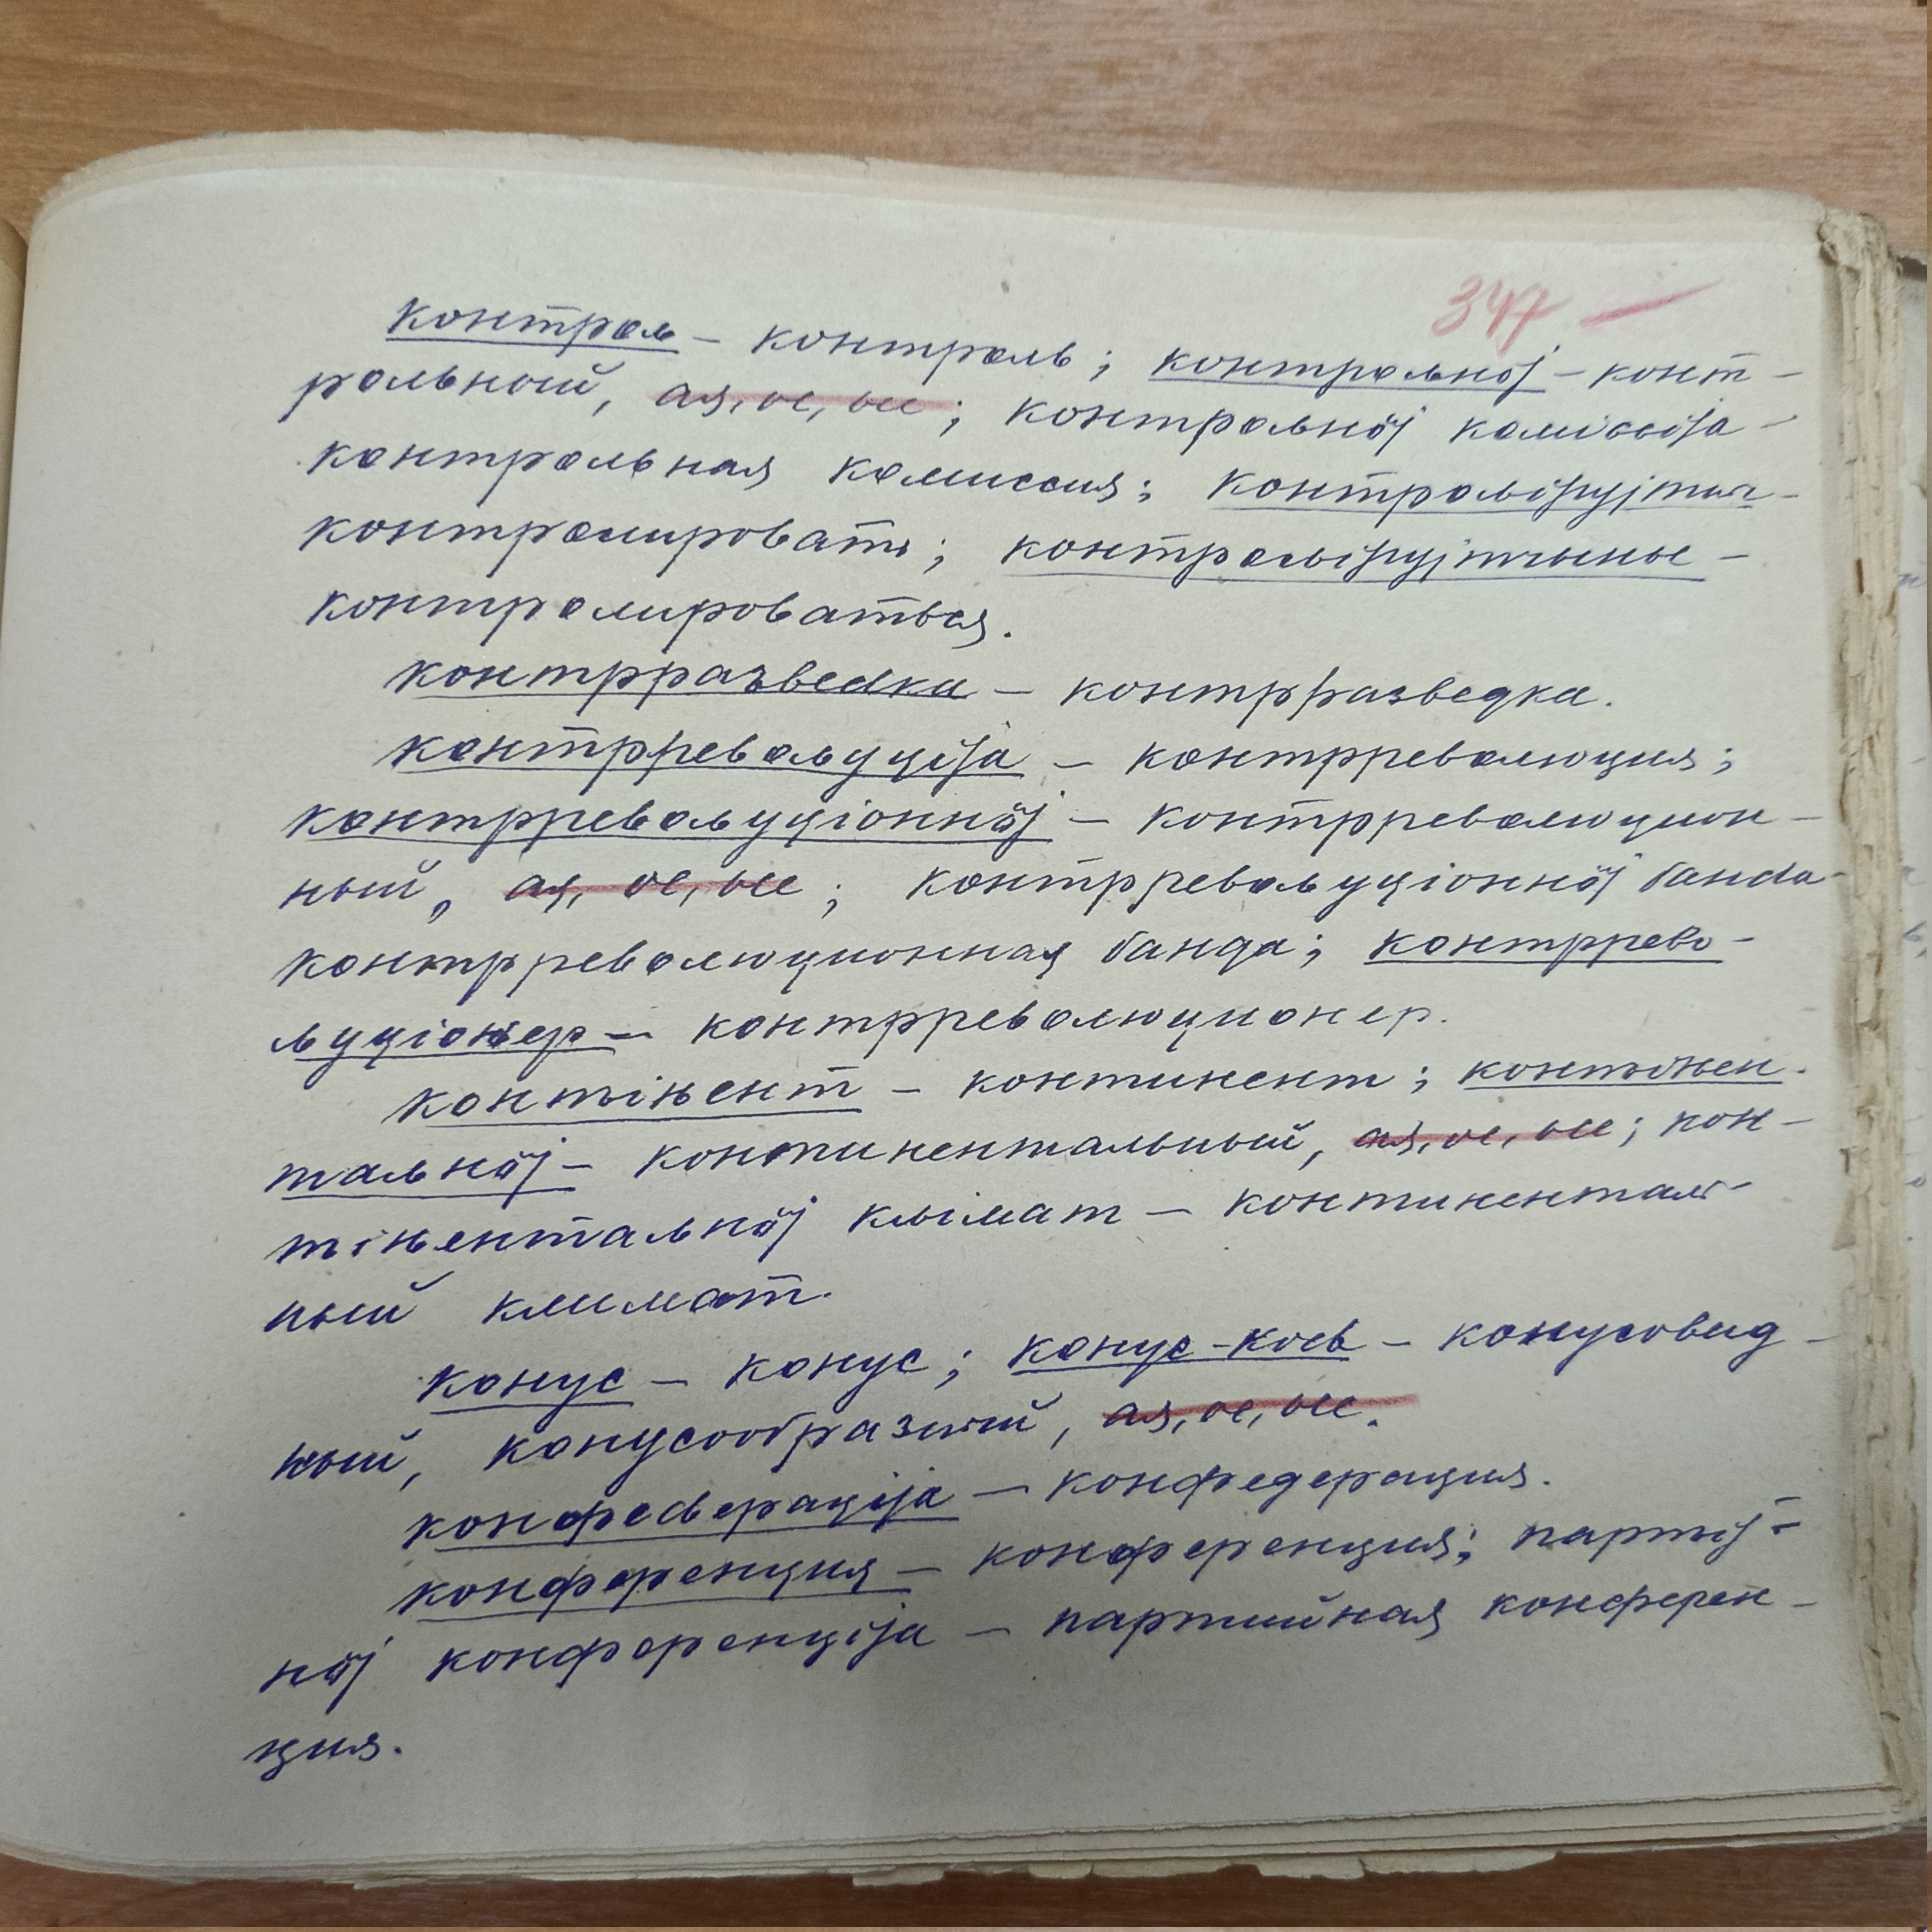 347 —
контроԉ – контроль; контроԉнӧј – конт-
рольный, ая, ое, ые; контроԉнӧј коміссіја –
контрольная комиссия; контроԉірујтны –
контролировать; контроԉірујтчыны –
контролироваться.
контрразведка – контрразведка.
контрревоԉуціја – контрреволюция;
контрревоԉуціоннӧј – контрреволюцион-
ный, ая, ое, ые; контрревоԉуціоннӧј банда –
контрреволюционная банда; контррево-
ԉуціоԋер – контрреволюционер.
конԏіԋент – континент; конԏіԋен-
таԉнӧј – континентальный, ая, ое, ые; кон-
ԏіԋентаԉнӧј кԉімат – континенталь-
ный климат.
конус – конус; конус-коԃ – конусовид-
ный, конусообразный, ая, ое, ые.
конфеԃераціја – конфедерация.
конференция – конференция; парԏіј-
нӧј конференціја – партийная конферен-
ция.